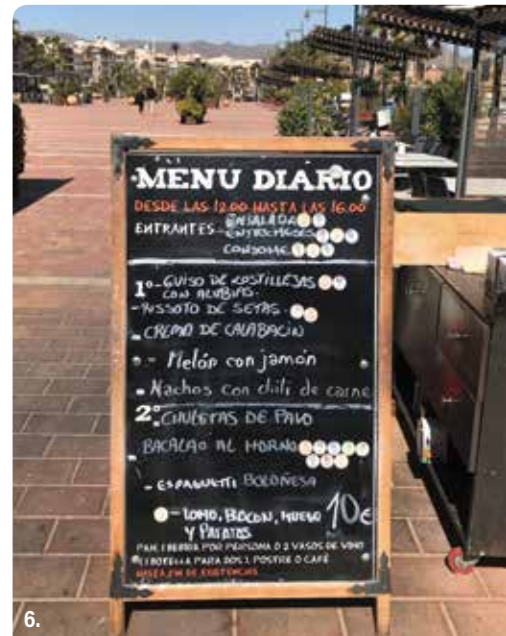 MENÚ DIARIO
DESDE LAS 12.00 HASTA LAS 16.00
ENTRANTES - ENSALADA
- ENTREMESES
CONSOME
1º- GUISO DE COSTILLEJAS
CON ALUBIAS.
- RISSOTO DE SETAS.
- CREMA DE CALABACIN
- Melón con jamón
- Nachos con chili de carne
2º. CHULETAS DE PAVO
BACALAO AL HORNO
- ESPAGUETTI BOLOÑESA
- LOMO, BACON, HUEVO 10€
Y PATATAS
PAN, 1 BEBIDA POR PERSONA O 2 VASOS DE VINO
1 BOTELLA PARA DOS, 1 POSTRE O CAFÉ
HASTA FIN DE EXISTENCIAS
6.